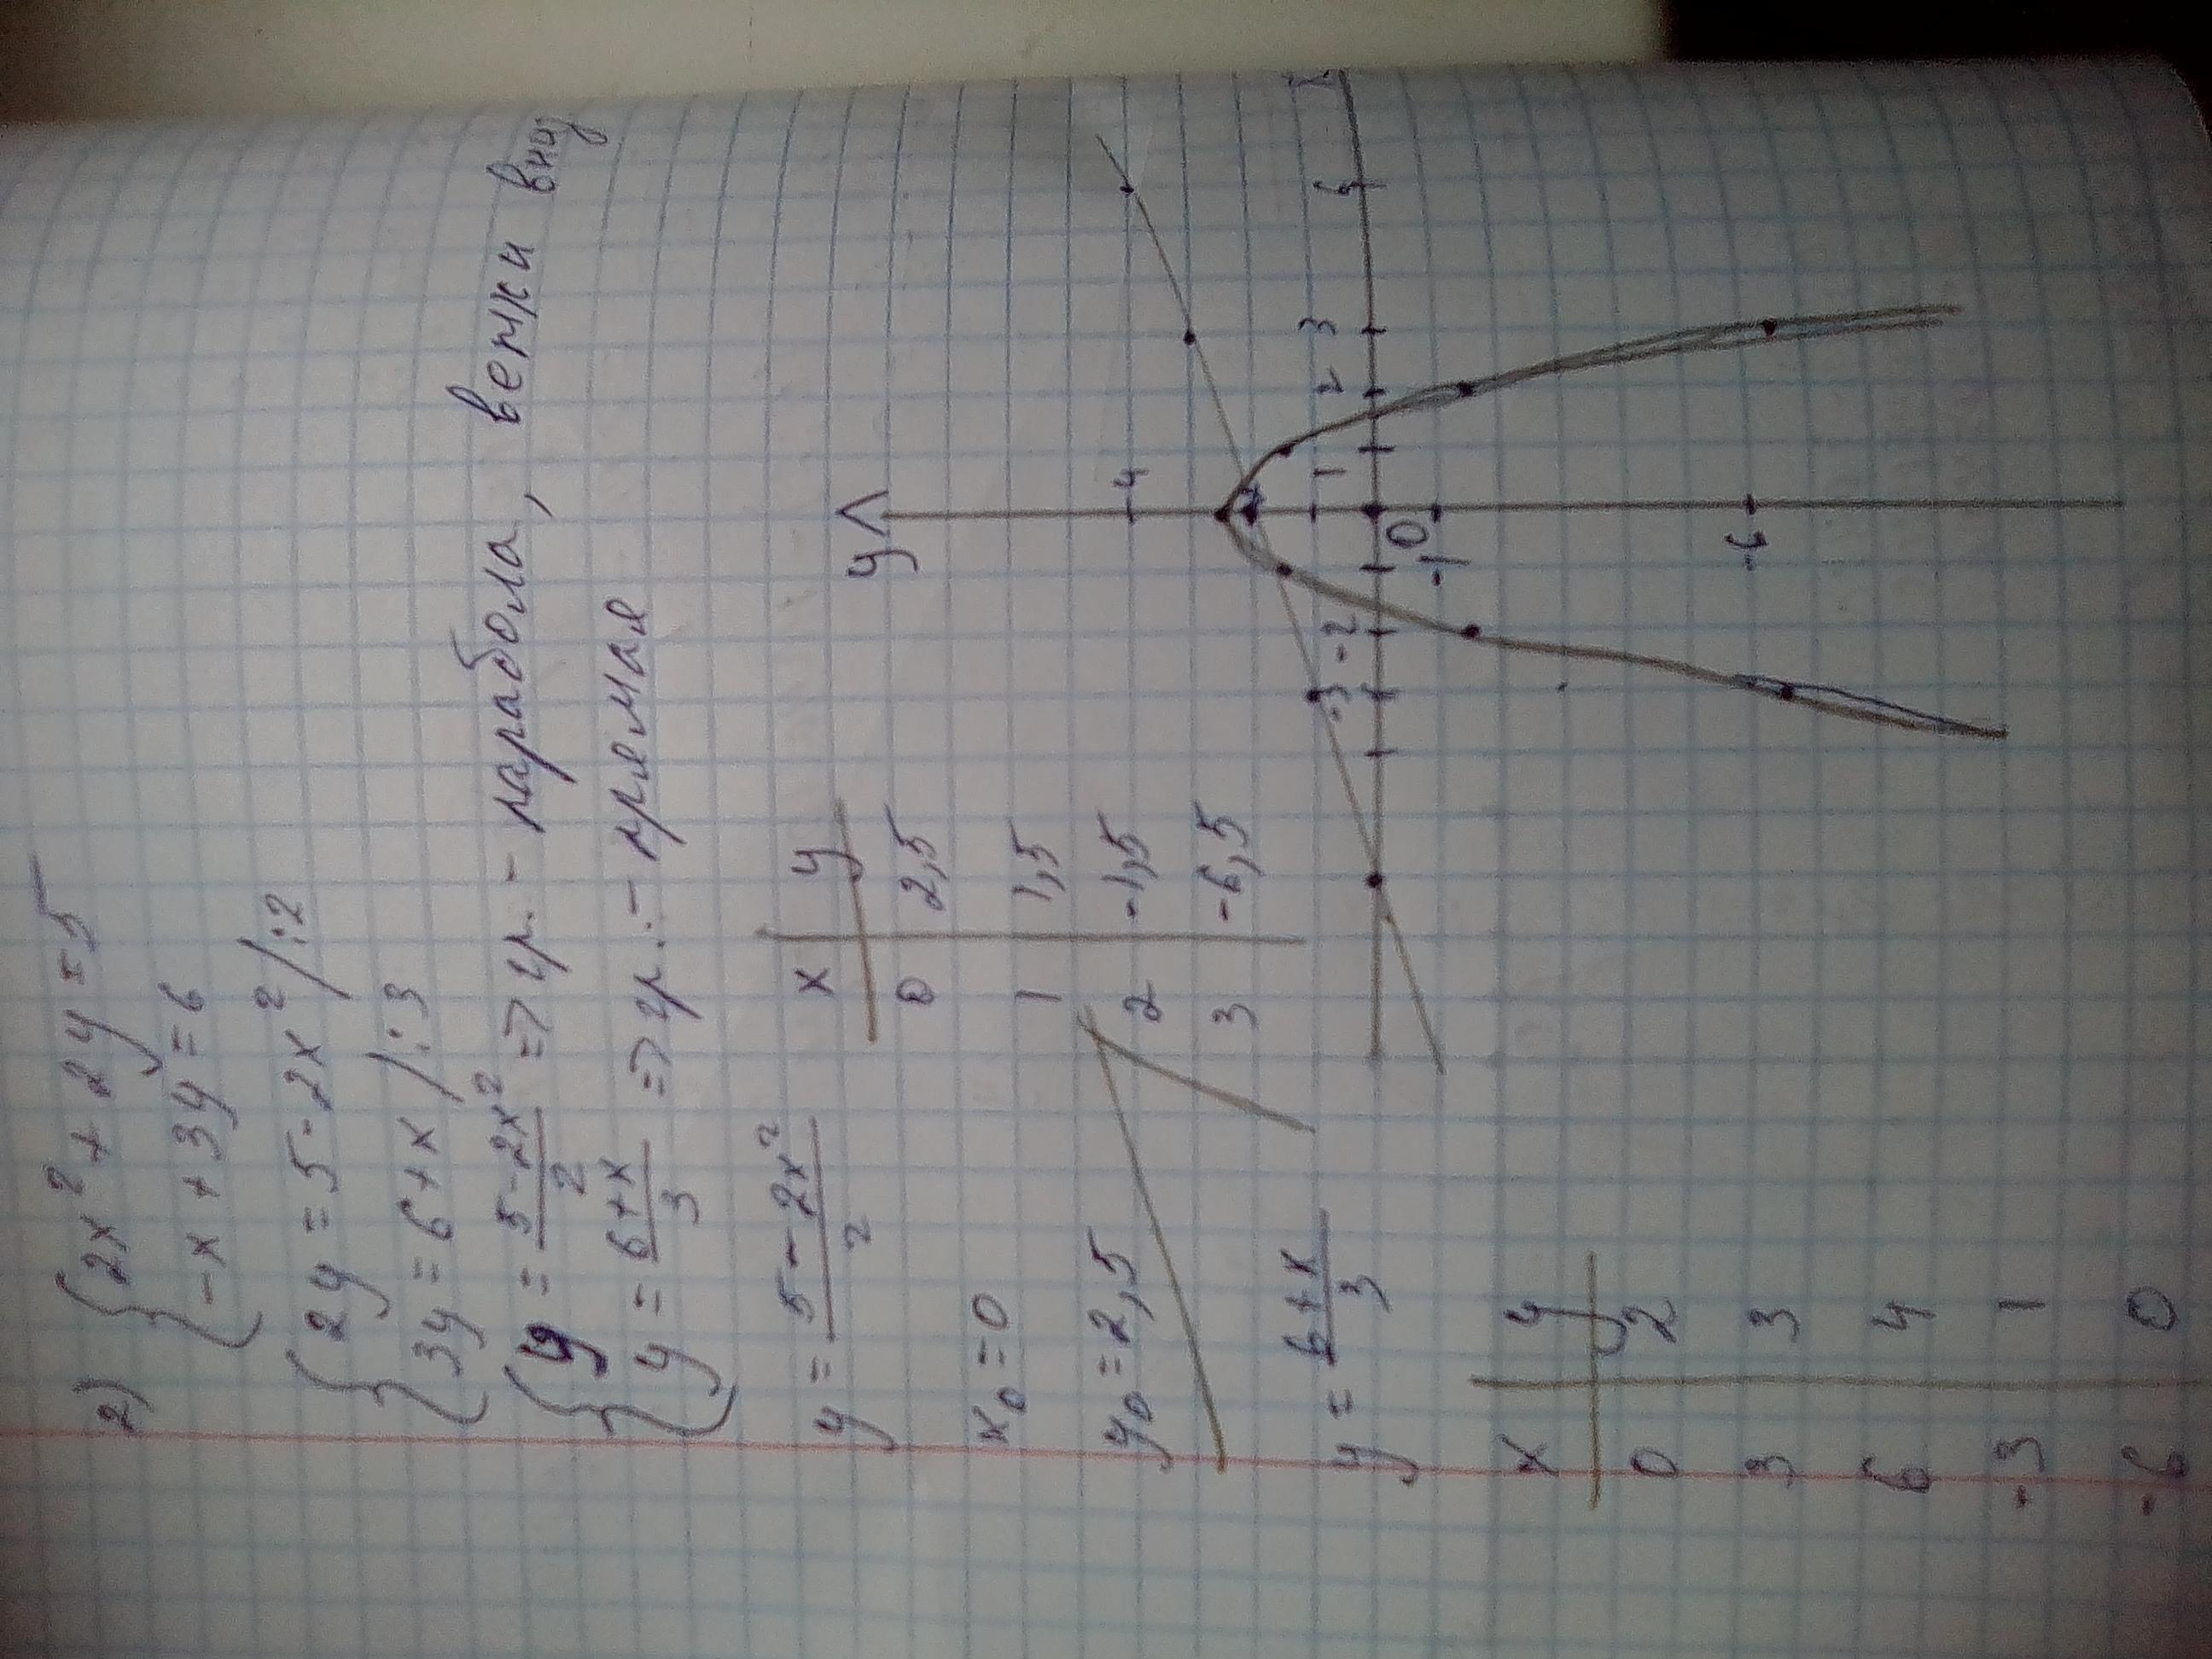 2) { 2x² + 2y = 5
{ -x + 3y = 6
{ 2y = 5 - 2x² /:2
{ 3y = 6 + x /:3
{ y = (5 - 2x²)/2 => гр. - парабола, ветки вниз
{ y = (6 + x)/3 => гр. - прямая
y = (5 - 2x²)/2
x₀ = 0
y₀ = 2,5
x y
0 2,5
1 1,5
2 -1,5
3 -6,5
y = (6 + x)/3
x y
0 2
3 3
6 4
-3 1
-6 0
y
4
2
1
-3 -2 2 3 6
0
-1
-6